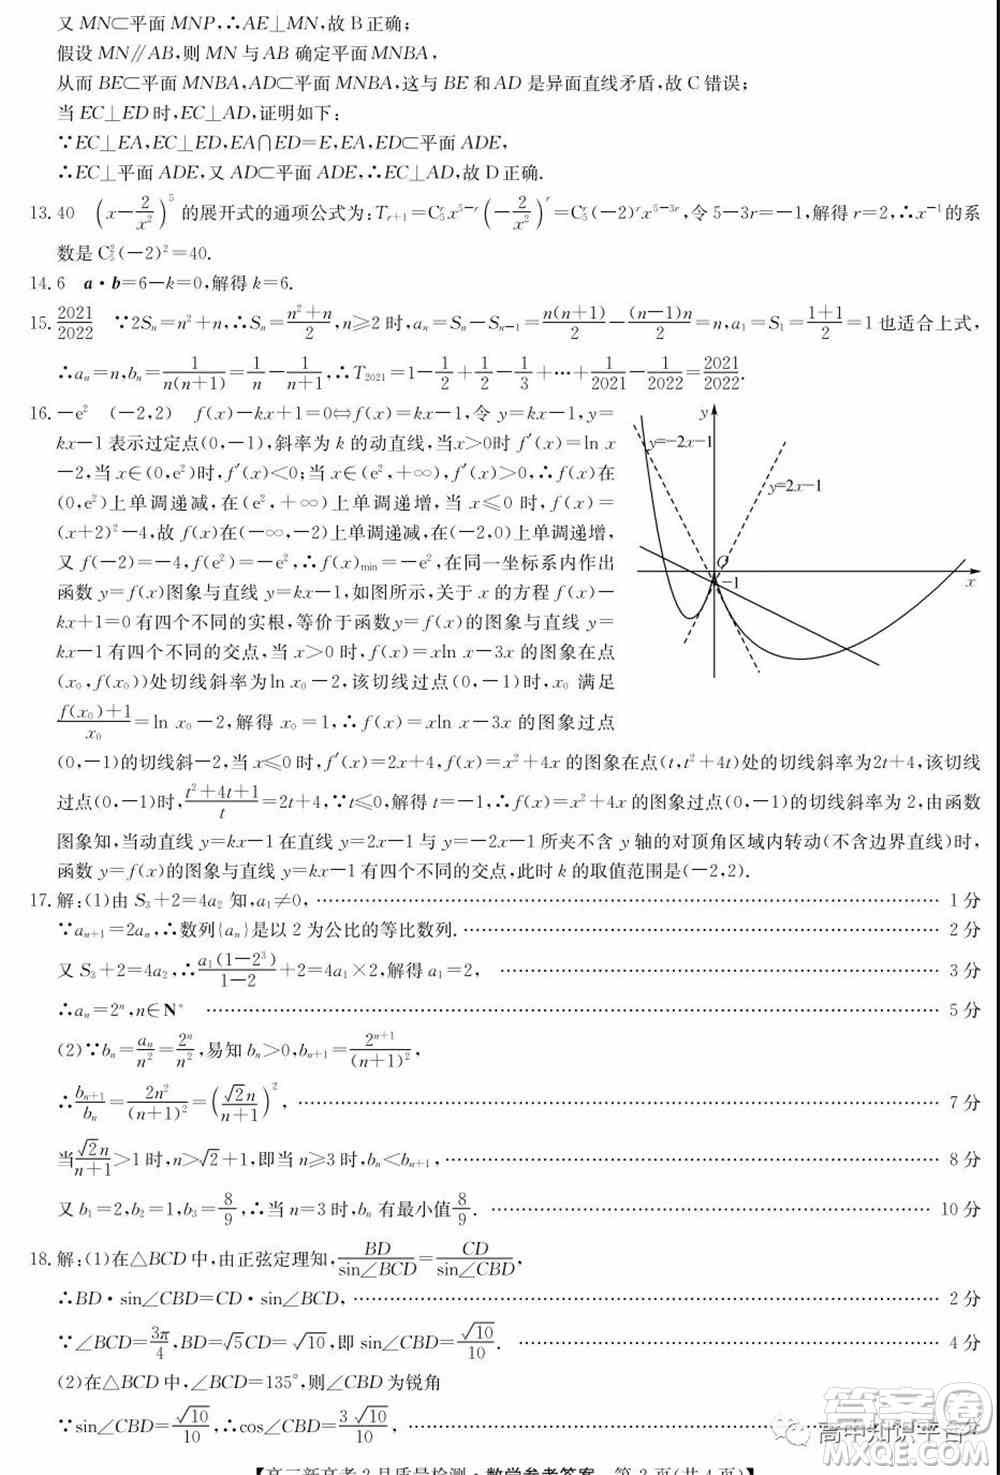 又 MN⊂平面 MNP,∴AE⊥MN,故 B 正确;
假设 MN∥AB,则 MN 与 AB 确定平面 MNBA,
从而 BE⊂平面 MNBA,AD⊂平面 MNBA,这与 BE 和 AD 是异面直线矛盾,故 C 错误;
当 EC⊥ED 时,EC⊥AD,证明如下:
∵EC⊥EA,EC⊥ED,EA∩ED=E,EA,ED⊂平面 ADE,
∴EC⊥平面 ADE,又 AD⊂平面 ADE,∴EC⊥AD,故 D 正确.
13. 40 (x−2/x²)⁵ 的展开式的通项公式为:T_{r+1}=C₅^r x^{5−r}(−2/x²)^r=C₅^r(−2)^r x^{5−3r},令 5−3r=−1,解得 r=2,∴x⁻¹ 的系
数是 C₅²(−2)²=40.
14. 6 a·b=6−k=0,解得 k=6.
15. 2021/2022 ∵2Sₙ=n²+n,∴Sₙ=(n²+n)/2,n≥2 时,aₙ=Sₙ−Sₙ₋₁=n(n+1)/2−(n−1)n/2=n,a₁=S₁=(1+1)/2=1 也适合上式,
∴aₙ=n,bₙ=1/(n(n+1))=1/n−1/(n+1),∴T₂₀₂₁=1−1/2+1/2−1/3+…+1/2021−1/2022=2021/2022.
16. −e² (−2,2) f(x)−kx+1=0⇔f(x)=kx−1,令 y=kx−1,y=
kx−1 表示过定点(0,−1),斜率为 k 的动直线,当x>0时 f′(x)=ln x
−2,当 x∈(0,e²)时,f′(x)<0;当 x∈(e²,+∞),f′(x)>0,∴f(x)在
(0,e²)上单调递减,在(e²,+∞)上单调递增,当 x≤0 时,f(x)=
(x+2)²−4,故 f(x)在(−∞,−2)上单调递减,在(−2,0)单调递增,
又 f(−2)=−4,f(e²)=−e²,∴f(x)min=−e²,在同一坐标系内作出
函数 y=f(x)图象与直线 y=kx−1,如图所示,关于 x 的方程 f(x)−
kx+1=0 有四个不同的实根,等价于函数y=f(x)的图象与直线 y=
kx−1 有四个不同的交点,当 x>0 时,f(x)=xln x−3x 的图象在点
(x₀,f(x₀))处切线斜率为 ln x₀−2,该切线过点(0,−1)时,x₀ 满足
(f(x₀)+1)/x₀=ln x₀−2,解得 x₀=1,∴f(x)=xln x−3x 的图象过点
(0,−1)的切线斜−2,当 x≤0 时,f′(x)=2x+4,f(x)=x²+4x 的图象在点(t,t²+4t)处的切线斜率为2t+4,该切线
过点(0,−1)时,(t²+4t+1)/t=2t+4,∵t≤0,解得 t=−1,∴f(x)=x²+4x 的图象过点(0,−1)的切线斜率为 2,由函数
图象知,当动直线 y=kx−1 在直线 y=2x−1 与 y=−2x−1 所夹不含 y 轴的对顶角区域内转动(不含边界直线)时,
函数 y=f(x)的图象与直线 y=kx−1 有四个不同的交点,此时 k 的取值范围是(−2,2).
y
y=−2x−1
y=2x−1
O
−1
x
17. 解:(1)由 S₃+2=4a₂ 知,a₁≠0, …… 1 分
∵aₙ₊₁=2aₙ,∴数列{aₙ}是以 2 为公比的等比数列. …… 2 分
又 S₃+2=4a₂,∴a₁(1−2³)/(1−2)+2=4a₁×2,解得 a₁=2, …… 3 分
∴aₙ=2ⁿ,n∈N* …… 5 分
(2)∵bₙ=aₙ/n²=2ⁿ/n²,易知 bₙ>0,bₙ₊₁=2ⁿ⁺¹/(n+1)²,
∴bₙ₊₁/bₙ=2n²/(n+1)²=(√2n/(n+1))², …… 7 分
当√2n/(n+1)>1 时,n>√2+1,即当 n≥3 时,bₙ<bₙ₊₁, …… 8 分
又 b₁=2,b₂=1,b₃=8/9,∴当 n=3 时,bₙ 有最小值8/9. …… 10 分
18. 解:(1)在△BCD 中,由正弦定理知,BD/sin∠BCD=CD/sin∠CBD,
∴BD·sin∠CBD=CD·sin∠BCD, …… 2 分
∵∠BCD=3π/4,BD=√5CD=√10,即 sin∠CBD=√10/10. …… 4 分
(2)在△ACD 中,∠BCD=135°,则∠CBD 为锐角
∵sin∠CBD=√10/10,∴cos∠CBD=3√10/10, ……
高中知识平台
答案圈
MXQE.COM
【高三新高考 2 月质量检测·数学参考答案 第 2 页(共 4 页)】